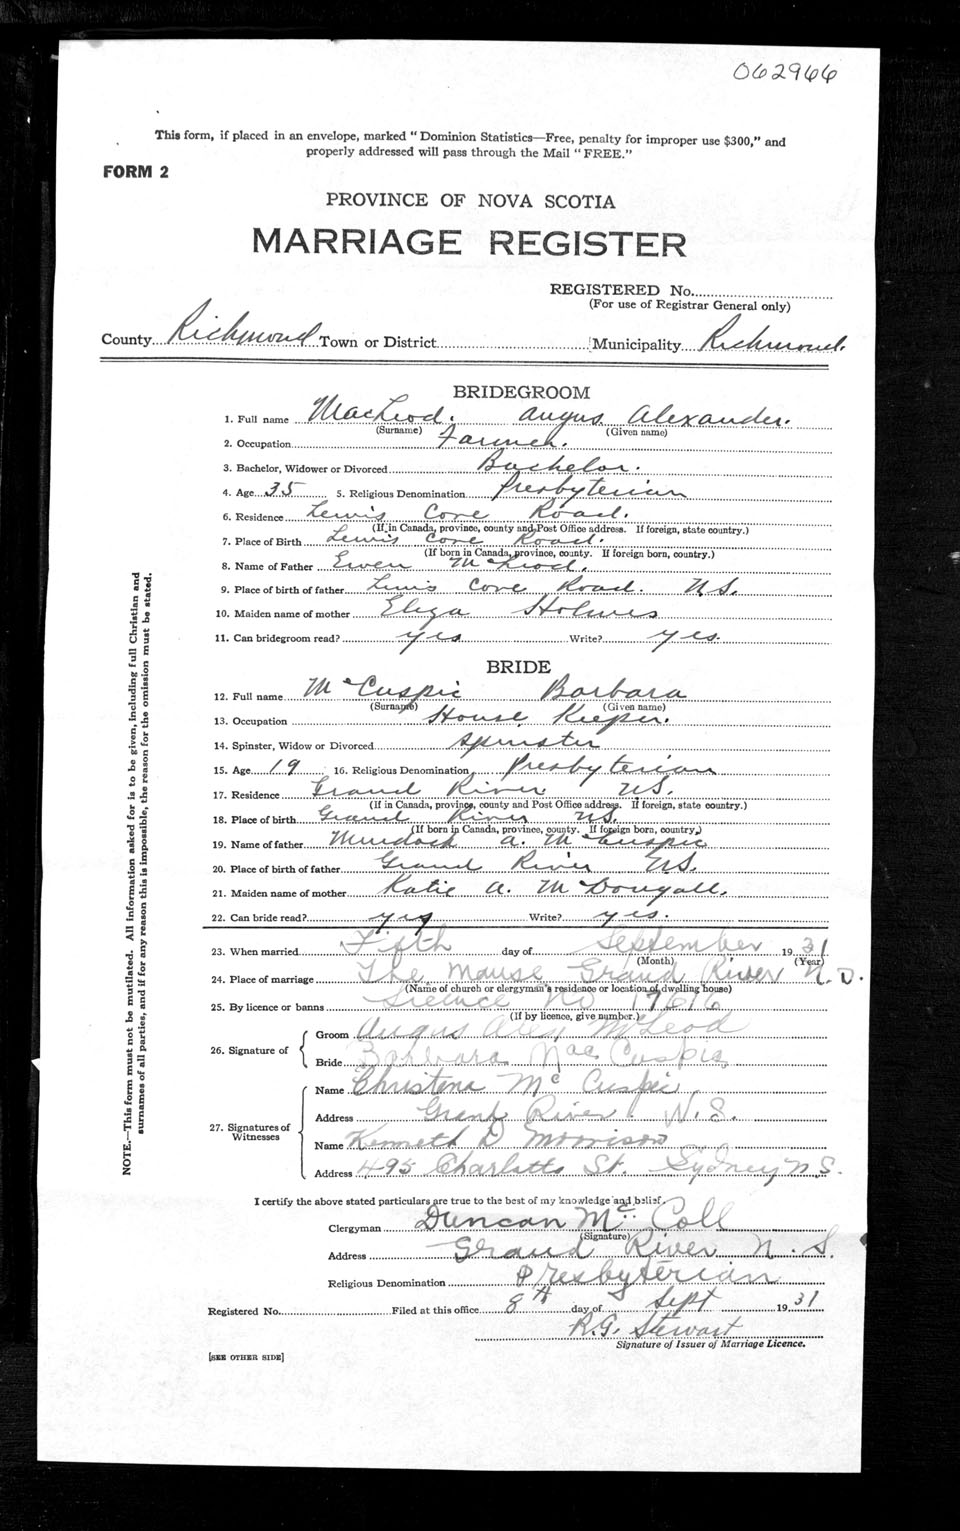 062966
This form, if placed in an envelope, marked "Dominion Statistics—Free, penalty for improper use $300," and
properly addressed will pass through the Mail "FREE."
FORM 2
PROVINCE OF NOVA SCOTIA
MARRIAGE REGISTER
REGISTERED No.
(For use of Registrar General only)
County Richmond Town or District Municipality Richmond.
BRIDEGROOM
1. Full name MacLeod. Angus Alexander.
(Surname) (Given name)
2. Occupation Farmer.
3. Bachelor, Widower or Divorced Bachelor.
4. Age 35 5. Religious Denomination Presbyterian
6. Residence Lewis Cove Road.
(If in Canada, province, county and Post Office address. If foreign, state country.)
7. Place of Birth Lewis Cove Road.
(If born in Canada, province, county. If foreign born, country.)
8. Name of Father Ewen McLeod.
9. Place of birth of father Lewis Cove Road. N.S.
10. Maiden name of mother Eliza Holmes
11. Can bridegroom read? yes Write? yes.
BRIDE
12. Full name McCuspic Barbara
(Surname) (Given name)
13. Occupation House Keeper.
14. Spinster, Widow or Divorced Spinster
15. Age 19 16. Religious Denomination Presbyterian
17. Residence Grand River N.S.
(If in Canada, province, county and Post Office address. If foreign, state country.)
18. Place of birth Grand River N.S.
(If born in Canada, province, county. If foreign born, country.)
19. Name of father Murdock A. McCuspic
20. Place of birth of father Grand River N.S.
21. Maiden name of mother Katie A. McDougall.
22. Can bride read? yes Write? yes.
23. When married Fifth day of September 1931
(Month) (Year)
24. Place of marriage The Manse Grand River N.S.
(Name of church or clergyman's residence or location of dwelling house)
25. By licence or banns No 17616
(If by licence, give number.)
26. Signature of Groom Angus Alex McLeod
Bride Barbara MacCuspic
27. Signatures of Witnesses Name Christena McCuspic
Address Grand River. N.S.
Name Kenneth D Morrison
Address 495 Charlotte St. Sydney N.S.
I certify the above stated particulars are true to the best of my knowledge and belief.
Clergyman Duncan McColl
(Signature)
Address Grand River N.S.
Religious Denomination Presbyterian
Registered No. Filed at this office 8th day of Sept 1931
R.G. Stewart
Signature of Issuer of Marriage Licence.
[SEE OTHER SIDE]
NOTE.—This form must not be mutilated. All information asked for is to be given, including full Christian and
surnames of all parties, and if for any reason this is impossible, the reason for the omission must be stated.